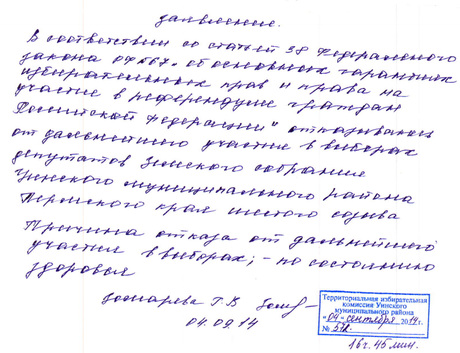 заявление.
В соответствии со статьей 38 Федерального
закона 67 "об основных гарантиях
избирательных прав и права на
участие в референдуме граждан
Российской Федерации" отказываюсь
от дальнейшего участия в выборах
депутатов Земского собрания
Уинского муниципального района
Пермского края шестого созыва
Причина отказа от дальнейшего
участия в выборах; - по состоянию
здоровья
Г.В
04.09.14
Территориальная избирательная
комиссия Уинского
муниципального района
"04" сентября 2014г.
№
16ч. 45 мин.